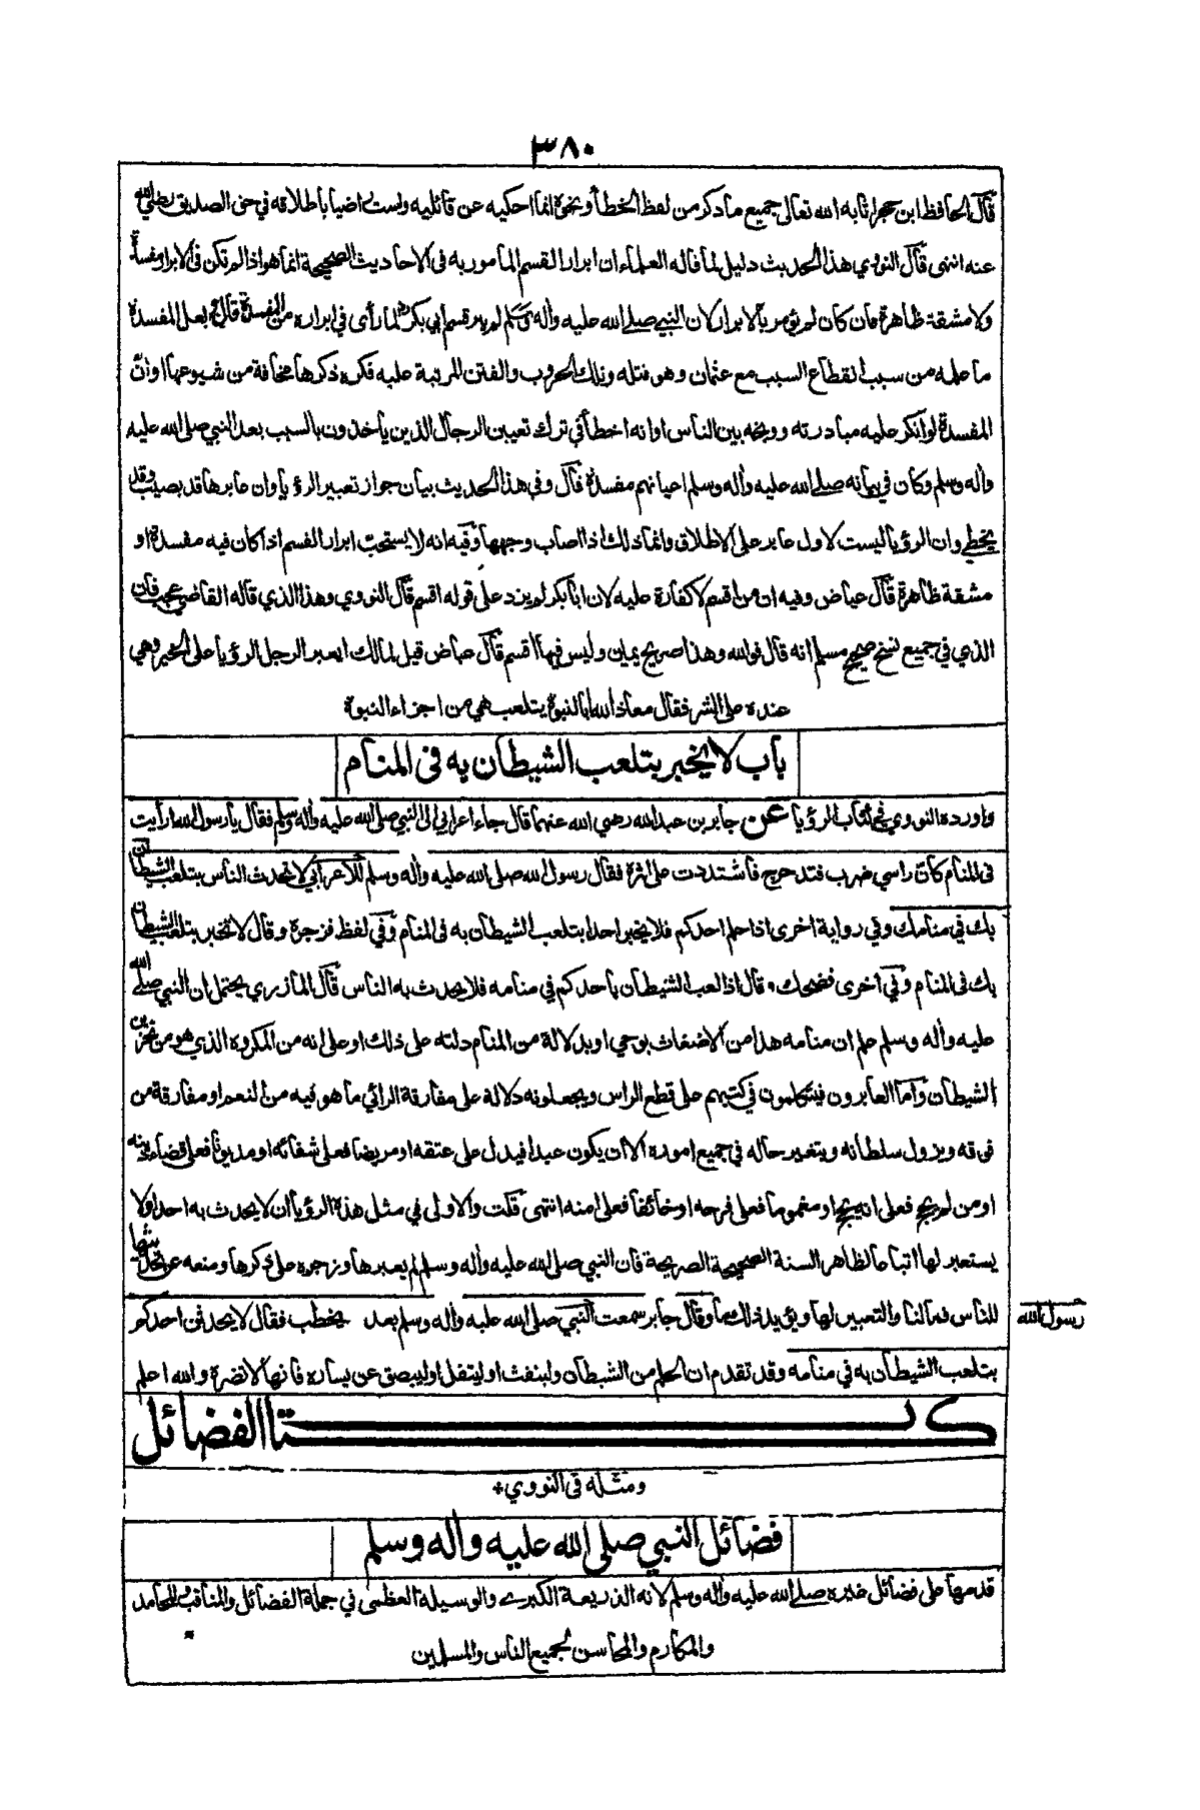 ٣٨٠
قال الحافظ ابن حجر اثابه الله تعالى جميع ما ذكر من لفظ الخطأ ونحوه انما احكيه عن قائليه ولست راضيا باطلاقه في حق الصديق رضي الله
عنه انتهى قال النووي هذا الحديث دليل لما قاله العلماء ان ابرار القسم المأمور به فى الاحاديث الصحيحة انما هو اذا لم تكن فى الابرار مفسدة
ولا مشقة ظاهرة فان كان لم يؤمر بالابرار لان النبي صلى الله عليه وأله وسلم لم يبر قسم أبي بكر لما رأى في ابراره من المفسدة قال ولعل المفسدة
ما علمه من سبب انقطاع السبب مع عثمان وهو قتله وتلك الحروب والفتن المترتبة عليه فكره ذكرها مخافة من شيوعها او ان
المفسدة لو انكر عليه مبادرته ووبخه بين الناس او انه اخطأ في ترك تعيين الرجال الذين يأخذون بالسبب بعد النبي صلى الله عليه
وأله وسلم وكان في بيانه صلى الله عليه وأله وسلم اعيانهم مفسدة قال وفي هذا الحديث بيان جواز تعبير الرؤيا وان عابرها قد يصيب وقد
يخطئ وان الرؤيا ليست لاول عابر على الاطلاق وانما ذلك اذا اصاب وجهها وفيه انه لا يستحب ابرار القسم اذا كان فيه مفسدة او
مشقة ظاهرة قال عياض وفيه ان من اقسم لا كفارة عليه لان ابا بكر لم يزد على قوله اقسم قال النووي وهذا الذي قاله القاضي عجب فان
الذي في جميع نسخ صحيح مسلم انه قال فوالله وهذا صريح يمين وليس فيها اقسم قال عياض قيل لمالك ايعبر الرجل الرؤيا على الخير وهي
عنده على الشر فقال معاذ الله ابالنبوة يتلعب هي من اجزاء النبوة
باب لا يخبر بتلعب الشيطان به فى المنام
واورده النووي في كتاب الرؤيا عن جابر بن عبد الله رضي الله عنهما قال جاء اعرابي الى النبي صلى الله عليه وأله وسلم فقال يا رسول الله رأيت
فى المنام كأن راسي ضرب فتدحرج فاشتددت على اثره فقال رسول الله صلى الله عليه وأله وسلم للاعرابي لا تحدث الناس بتلعب الشيطان
بك في منامك وفي رواية اخرى اذا حلم احدكم فلا يخبر احدا بتلعب الشيطان به فى المنام وفي لفظ فزجره وقال لا تخبر بتلعب الشيطان
بك فى المنام وفي اخرى فضحك وقال اذا لعب الشيطان باحدكم في منامه فلا يحدث به الناس قال المازري يحتمل ان النبي صلى الله
عليه وأله وسلم علم ان منامه هذا من الاضغاث بوحي او بدلالة من المنام دلته على ذلك او على انه من المكروه الذي هو من تحزين
الشيطان واما العابرون فيتكلمون في كتبهم على قطع الراس ويجعلونه دلالة على مفارقة الرائي ما هو فيه من النعم او مفارقة من
فوقه ويزول سلطانه ويتغير حاله في جميع اموره الا ان يكون عبدا فيدل على عتقه او مريضا فعلى شفائه او مديونا فعلى قضاء دينه
او من لم يحج فعلى انه يحج او مغموما فعلى فرحه او خائفا فعلى امنه انتهى قلت والاولى في مثل هذه الرؤيا ان لا يحدث به احدا ولا
يستعبر لها اتباعا لظاهر السنة الصحيحة الصريحة فان النبي صلى الله عليه وأله وسلم لم يعبرها وزجره على ذكرها ومنعه عن تحديثها
للناس فما لنا والتعبير لها ويؤيد ذلك ما وقال جابر سمعت النبي صلى الله عليه وأله وسلم بعد يخطب فقال لا يحدثن احدكم
رسول الله
بتلعب الشيطان به في منامه وقد تقدم ان الحلم من الشيطان ولينفث او ليتفل او ليبصق عن يساره فانها لا تضره والله اعلم
كتاب الفضائل
ومثله فى النووي
فضائل النبي صلى الله عليه وأله وسلم
قدمها على فضائل غيره صلى الله عليه وأله وسلم لانه الذريعة الكبرى والوسيلة العظمى في جملة الفضائل والمناقب والمحامد
والمكارم والمحاسن لجميع الناس والمسلمين